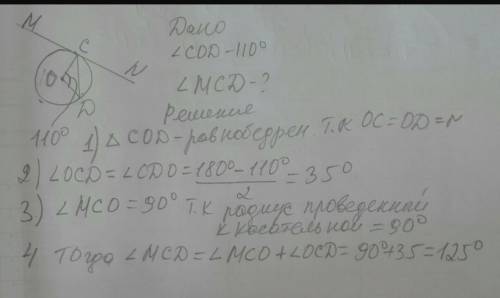 M
Дано
C
∠COD-110°
O
N
∠MCD-?
D
Решение
110°
1) △ COD-равнобедрен. т.к OC=OD=r
2) ∠OCD=∠CDO=180°-110°/2=35°
3) ∠MCO=90° т.к радиус проведенный
к касательной =90°
4 Тогда ∠MCD=∠MCO+∠OCD=90°+35=125°